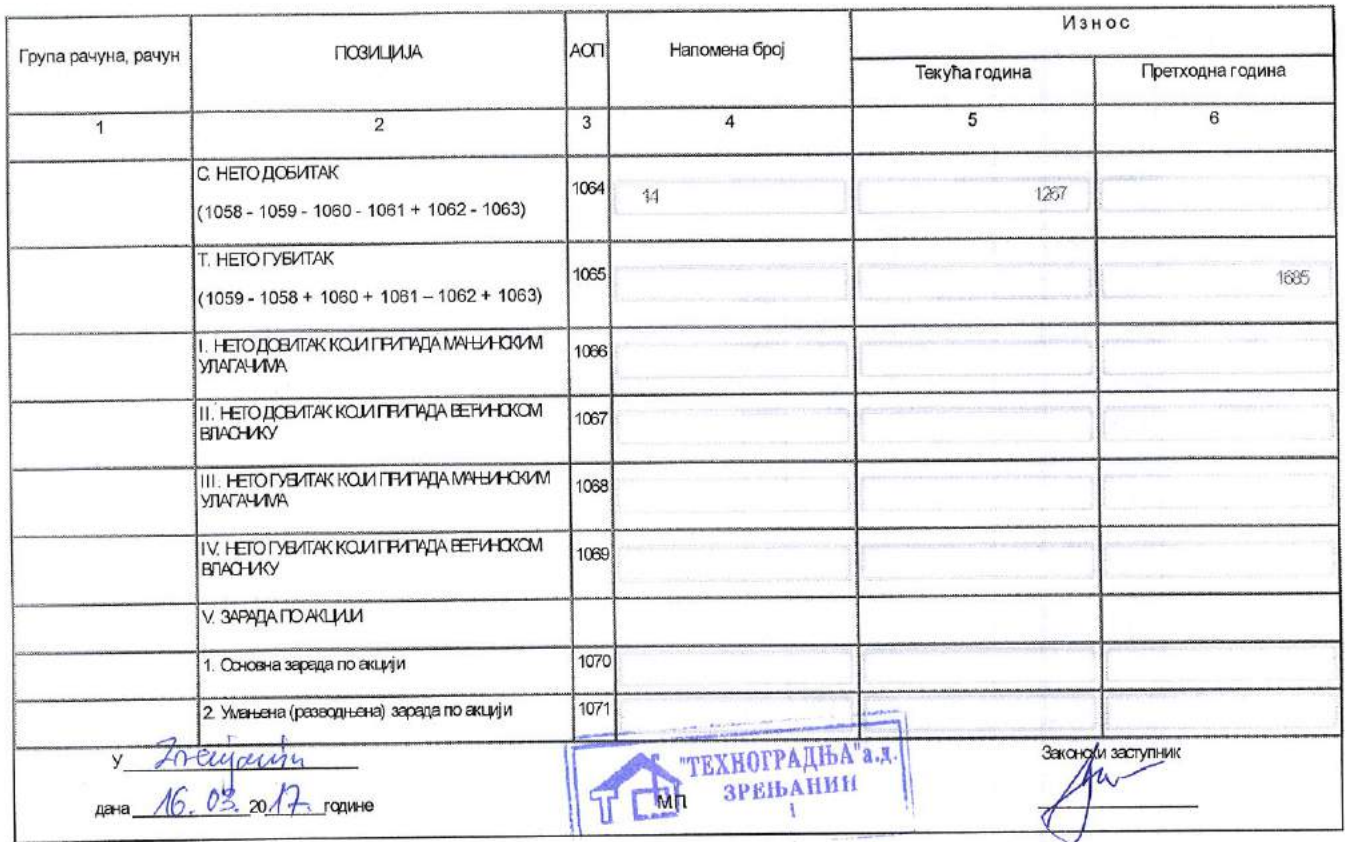 Група рачуна, рачун
ПОЗИЦИЈА
АОП
Напомена број
Износ
Текућа година
Претходна година
1 2 3 4 5 6
С. НЕТО ДОБИТАК
(1058 - 1059 - 1060 - 1061 + 1062 - 1063)
1064 14 1267
Т. НЕТО ГУБИТАК
(1059 - 1058 + 1060 + 1061 – 1062 + 1063)
1065 1685
I. НЕТО ДОБИТАК КОЈИ ПРИПАДА МАЊИНСКИМ
УЛАГАЧИМА
1066
II. НЕТО ДОБИТАК КОЈИ ПРИПАДА ВЕЋИНСКОМ
ВЛАСНИКУ
1067
III. НЕТО ГУБИТАК КОЈИ ПРИПАДА МАЊИНСКИМ
УЛАГАЧИМА
1068
IV. НЕТО ГУБИТАК КОЈИ ПРИПАДА ВЕЋИНСКОМ
ВЛАСНИКУ
1069
V. ЗАРАДА ПО АКЦИЈИ
1. Основна зарада по акцији 1070
2. Умањена (разводњена) зарада по акцији 1071
У Zrenjaninu
дана 16. 03. 2017. године
МП
"ТЕХНОГРАДЊА"а.д.
ЗРЕЊАНИН
1
Законски заступник